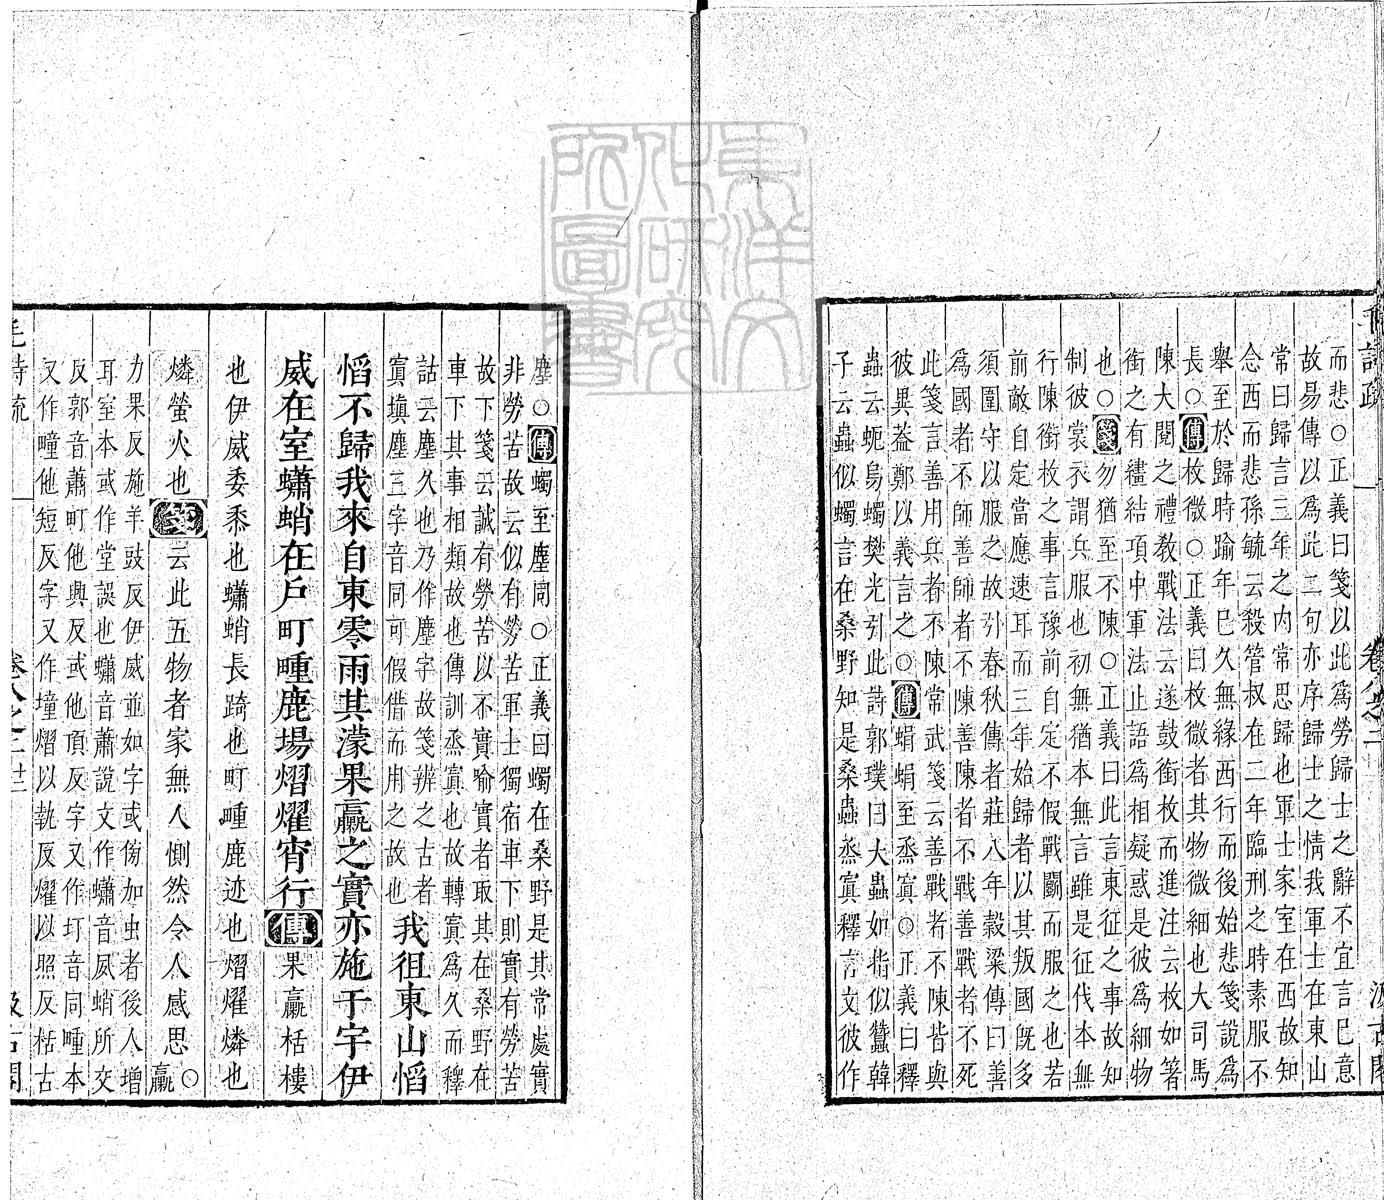 毛詩疏　卷八之二　汲古閣
而悲○正義曰箋以此爲勞歸士之辭不宜言已意
故易傳以爲此二句亦序歸士之情我軍士在東山
常曰歸言三年之内常思歸也軍士家室在西故知
念西而悲孫毓云殺管叔在二年臨刑之時素服不
舉至於歸時踰年已久無緣西行而後始悲箋說爲
長○傳枚微○正義曰枚微者其物微細也大司馬
陳大閱之禮教戰法云遂鼓銜枚而進注云枚如箸
銜之有繣結項中軍法止語爲相疑惑是彼爲細物
也○箋勿猶至不陳○正義曰此言東征之事故知
制彼裳衣謂兵服也初無猶本無言雖是征伐本無
行陳銜枚之事言豫前自定不假戰鬭而服之也若
前敵自定當應速耳而三年始歸者以其叛國既多
須圍守以服之故引春秋傳者莊八年穀梁傳曰善
爲國者不師善師者不陳善陳者不戰善戰者不死
此箋言善用兵者不陳常武箋云善戰者不陳皆與
彼異蓋鄭以義言之○傳蜎蜎至烝寘○正義曰釋
蟲云蚅烏蠋樊光引此詩郭璞曰大蟲如指似蠶韓
子云蟲似蠋言在桑野知是桑蟲烝寘釋言文彼作
塵○傳蠋至塵同○正義曰蠋在桑野是其常處實
非勞苦故云似有勞苦軍士獨宿車下則實有勞苦
故下箋云誠有勞苦以不實喻實者取其在桑野在
車下其事相類故也傳訓烝寘也故轉寘爲久而釋
詁云塵久也乃作塵字故箋辨之古者
寘填塵三字音同可假借而用之故也
我徂東山慆
慆不歸我來自東零雨其濛果臝之實亦施于宇伊
威在室蠨蛸在戶町畽鹿場熠燿宵行傳果臝栝樓
也伊威委黍也蠨蛸長踦也町畽鹿迹也熠燿燐也
燐螢火也箋云此五物者家無人惻然令人感思○臝
力果反施羊豉反伊威並如字或傍加虫者後人增
耳室本或作堂誤也蠨音蕭說文作蠨音夙蛸所交
反郭音蕭町他典反或他頂反字又作圢音同畽本
又作疃他短反字又作墥熠以執反燿以照反栝古
毛詩疏　卷八之二　廿三　汲古閣
東洋文化研究所圖書